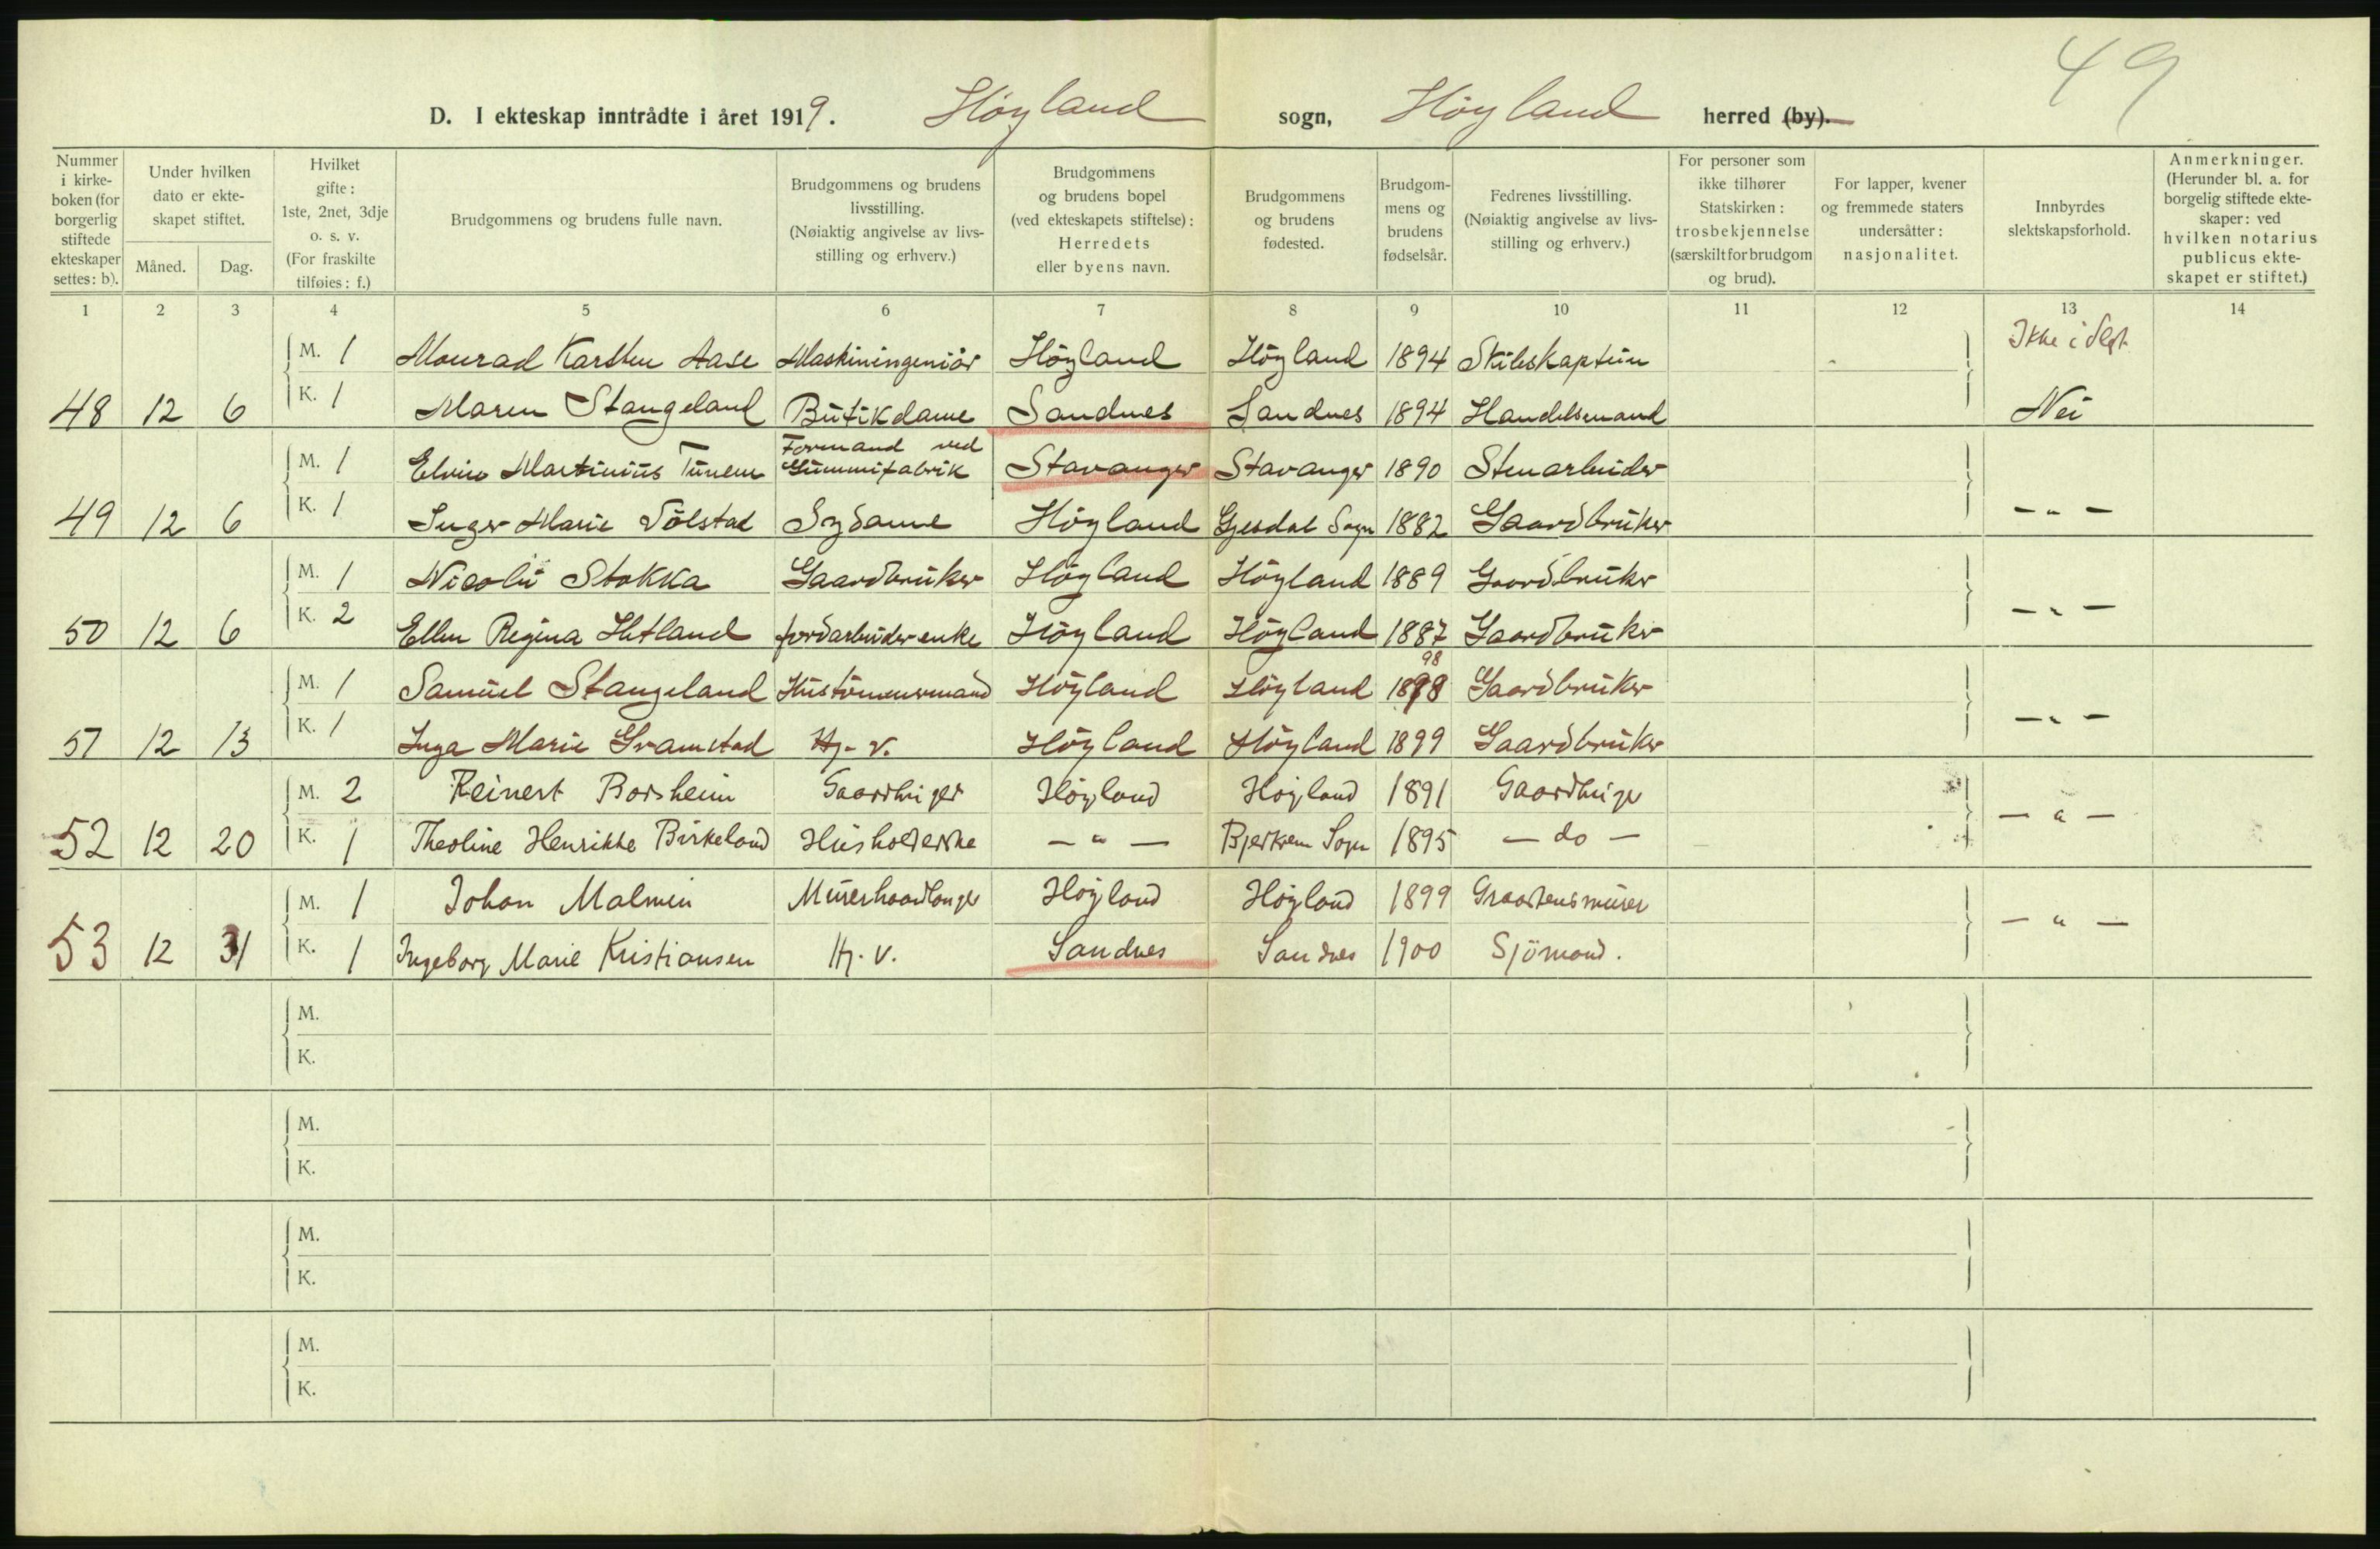 49
D. I ekteskap inntrådte i året 1919. Höyland sogn, Höyland herred (by).
Nummer i kirke-boken (for borgerlig stiftede ekteskaper settes: b).
Under hvilken dato er ekte-skapet stiftet.
Måned. Dag.
Hvilket gifte: 1ste, 2net, 3dje o. s. v. (For fraskilte tilføies: f.)
Brudgommens og brudens fulle navn.
Brudgommens og brudens livsstilling. (Nøiaktig angivelse av livs-stilling og erhverv.)
Brudgommens og brudens bopel (ved ekteskapets stiftelse): Herredets eller byens navn.
Brudgommens og brudens fødested.
Brudgom-mens og brudens fødselsår.
Fedrenes livsstilling. (Nøiaktig angivelse av livs-stilling og erhverv.)
For personer som ikke tilhører Statskirken: trosbekjennelse (særskilt for brudgom og brud).
For lapper, kvener og fremmede staters undersåtter: nasjonalitet.
Innbyrdes slektskapsforhold.
Anmerkninger. (Herunder bl. a. for borgelig stiftede ekte-skaper: ved hvilken notarius publicus ekte-skapet er stiftet.)
1 2 3 4 5 6 7 8 9 10 11 12 13 14
M. 1 Monrad Karsten Aase Maskiningeniör Höyland Höyland 1894 Skibskaptein Ikke i Slegt
48 12 6 K. 1 Maren Stangeland Butikdame Sandnes Sandnes 1894 Handelsmand Nei
M. 1 Martinius Tunem Formand ved Gummifabrik Stavanger Stavanger 1890 Stenarbeider
49 12 6 K. 1 Inger Marie Sölstad Sydame Höyland Gjesdal Sogn 1882 Gaardbruker — " —
M. 1 Nicolai Stokka Gaardbruker Höyland Höyland 1889 Gaardbruker
50 12 6 K. 2 Ellen Regina Hetland jordarbeiderenke Höyland Höyland 1887 Gaardbruker — " —
98
M. 1 Samuel Stangeland Hustömmermand Höyland Höyland 1898 Gaardbruker
51 12 13 K. 1 Inga Marie Gramstad Hj. v. Höyland Höyland 1899 Gaardbruker — " —
M. 2 Reinert Borsheim Gaardbruger Höyland Höyland 1891 Gaardbruger
52 12 20 K. 1 Theoline Henrikke Birkeland Husholderske — " — Bjerkrem Sogn 1895 — do — — " —
M. 1 Johan Malmin Murerhaandlanger Höyland Höyland 1899 Graastensmurer
53 12 31 K. 1 Ingeborg Marie Kristiansen Hj. V. Sandnes Sandnes 1900 Sjömand. — " —
M.
K.
M.
K.
M.
K.
M.
K.